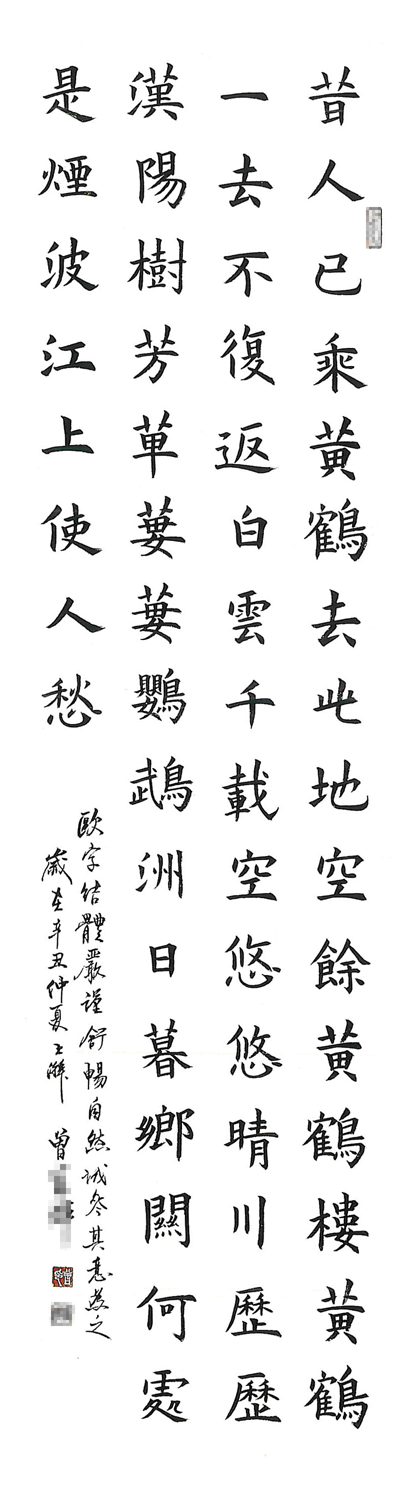 昔人已乘黃鶴去此地空餘黃鶴樓黃鶴
一去不復返白雲千載空悠悠晴川歷歷
漢陽樹芳草萋萋鸚鵡洲日暮鄉關何處
是煙波江上使人愁
歐字結體嚴謹舒暢自然試參其意為之
歲在辛丑仲夏上澣 曾